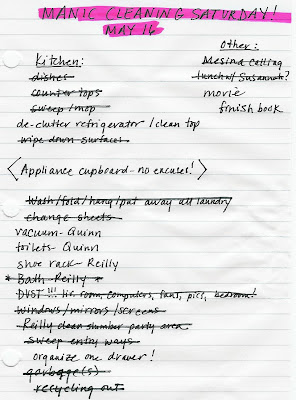 MANIC CLEANING SATURDAY!
MAY 16
Kitchen:
dishes
counter tops
sweep/mop
de-clutter refrigerator/clean top
wipe down surfaces
Other:
Mesina calling
lunch w/ Susannah?
movie
finish book
<Appliance cupboard-no excuses!>
Wash/fold/hang/put away all laundry
change sheets
vacuum-Quinn
toilets-Quinn
shoe rack-Reilly
*Bath-Reilly*
DUST!!! liv. room, computers, fans, pics, bedroom!
windows/mirrors/screens
Reilly clean slumber party area
sweep entry ways
organize one drawer!
garbage(s)
recycling out